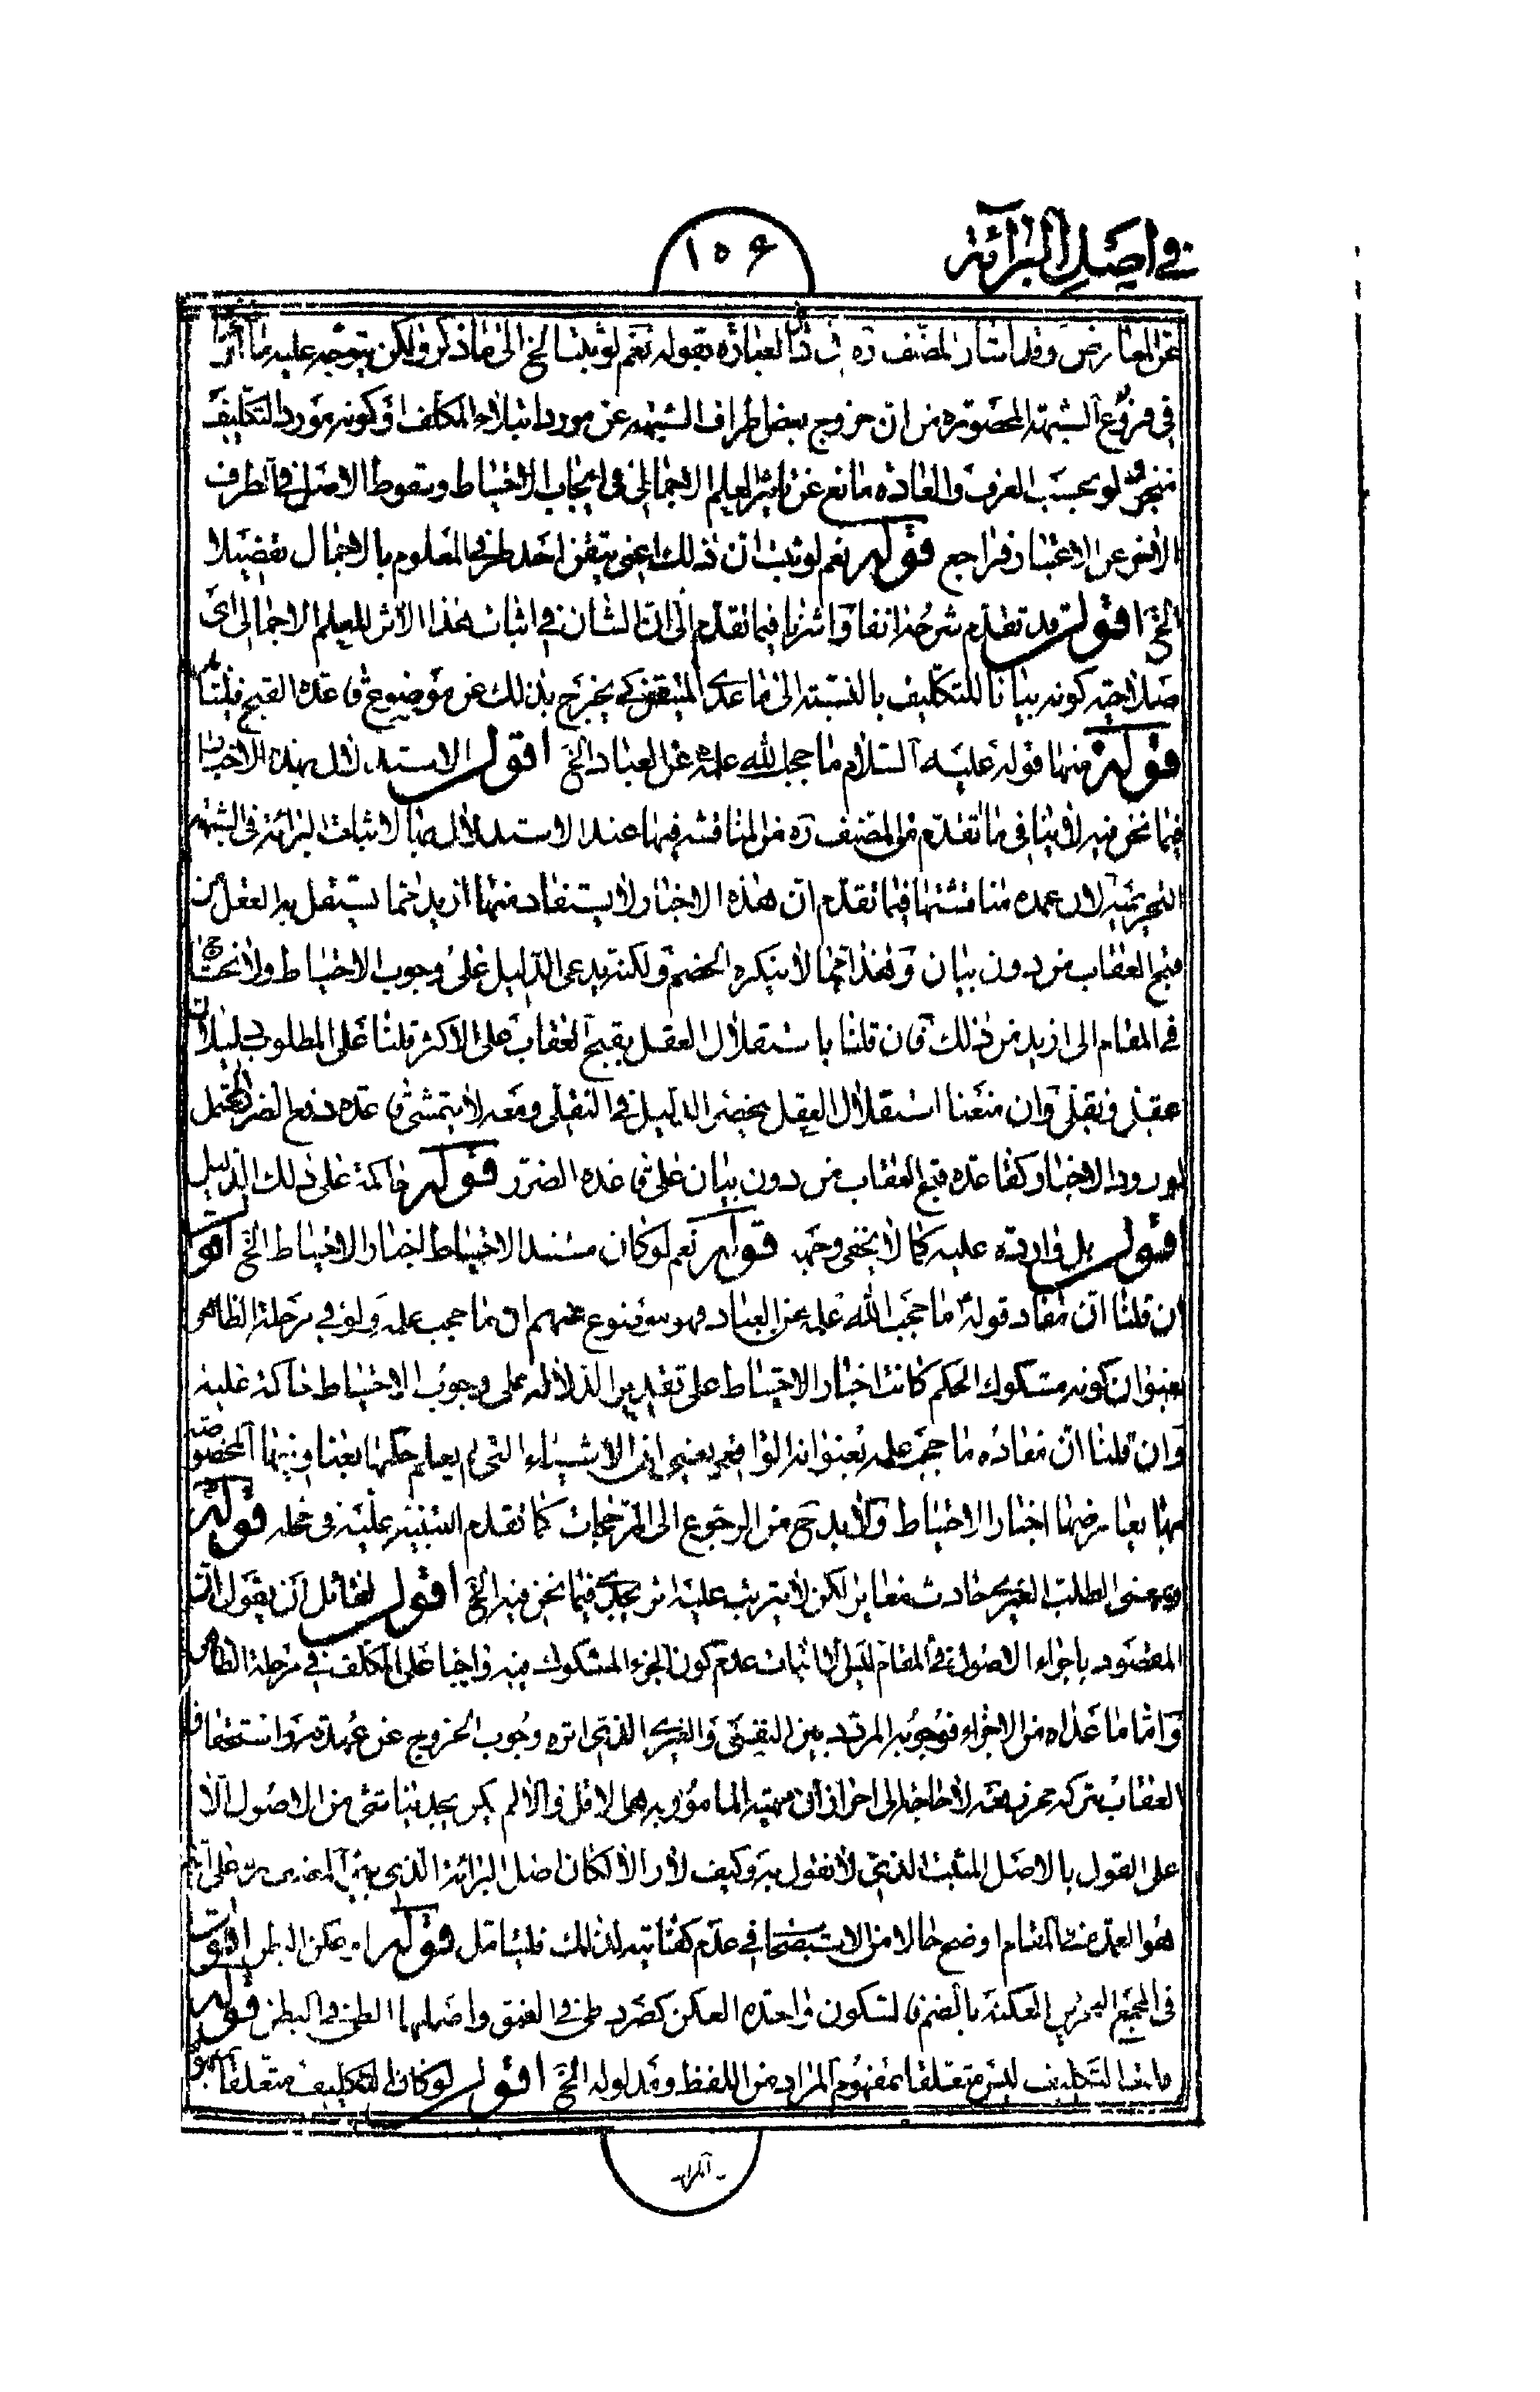 في اصل البرائة
١٥۶
عن المعارض وقد اشار المصنف ره في ذيل العبارة بقوله نعم لو ثبت الخ الى ما ذكر ولكن يتوجه عليه ما اثرنا
في فروع الشبهة المحصورة من ان خروج بعض اطراف الشبهة عن مورد ابتلاء المكلف وكونه مورد التكليف
منجز لو بحسب العرف والعادة مانع عن تاثير العلم الاجمالى فى ايجاب الاحتياط وسقوط الاصل فى الطرف
الاخر عن الاعتبار فراجع قوله نعم لو ثبت ان ذلك اعنى تيقن احد طرفى المعلوم بالاجمال تفصيلا
الخ اقول قد تقدم شرحه انفا واشرنا فيما تقدم الى ان الشان في اثبات هذا الاثر للعلم الاجمالى اى
صلاحية كونه بيانا للتكليف بالنسبة الى ما عدى المتيقن كى يخرج بذلك عن موضوع قاعدة القبح فليتامل
قوله منها قوله عليه السلام ما حجب الله علمه عن العباد الخ اقول الاستدلال بهذه الاخبار
فيما نحن فيه لا ينافى ما تقدم من المصنف ره من المناقشة فيها عند الاستدلال بها لاثبات البرائة فى الشبهة
التحريمية لان عمدة مناقشتها فيما تقدم ان هذه الاخبار لا يستفاد منها ازيد مما يستقل به العقل من
قبح العقاب من دون بيان وهذا مما لا ينكره الخصم ولكنه يدعى الدليل على وجوب الاحتياط ولا نحتاج
في المقام الى ازيد من ذلك فان قلنا باستقلال العقل بقبح العقاب على الاكثر قلنا على المطلوب دليلان
عقلى ونقلى وان منعنا استقلال العقل يحصر الدليل في النقلى ومعه لا يتمشى قاعدة دفع الضرر المحتمل
لورود الاخبار كقاعدة قبح العقاب من دون بيان على قاعدة الضرر قوله حاكمة على ذلك الدليل
اقول بل واردة عليه كما لا يخفى وجهه قوله نعم لو كان مستند الاحتياط اخبار الاحتياط الخ اقول
ان قلنا ان مفاد قوله ما حجب الله علمه عن العباد فهو موضوع عنهم ان ما حجب علمه ولو في مرحلة الظاهر
بعنوان كونه مشكوك الحكم كانت اخبار الاحتياط على تقدير الدلالة على وجوب الاحتياط حاكمة عليه
وان قلنا ان مفاده ما حجب علمه بعنوانه الواقعى يعنى ان الاشياء التى لم يعلم حكمها بعناوينها المخصوصة
بها يعارضها اخبار الاحتياط ولا بد ح من الرجوع الى المرجحات كما تقدم التنبيه عليه فى محله قوله
وبمعنى الطلب الغيرى حادث مغاير لكن لا يترتب عليه اثر يجدى فيما نحن فيه الخ اقول لقائل ان يقول ان
المقصود باجراء الاصول فى المقام ليس الا اثبات عدم كون الجزء المشكوك فيه واجبا على المكلف في مرحلة الظاهر
واما ما عداه من الاجزاء فوجوبه المردد بين النفسى والغيرى الذى اثره وجوب الخروج عن عهدته واستحقاق
العقاب بتركه محرز معه لا حاجة الى احراز ان مهية المامور به هى الاقل والا لم يكن يجدينا شئ من الاصول الا
على القول بالاصل المثبت الذى لا نقول به وكيف لا والا لكان اصل البرائة الذى على انه
هو العمدة فى المقام اوضح حالا من الاستصحاب في عدم كفايته لذلك فليتامل قوله اقول
فى المجمع البحرين العكنة بالضم فالسكون واحدة العكن كصرد طى فى العنق واصلها الطى فى البطن قوله
التكليف ليس متعلقا بمفهوم المراد من اللفظ ومدلوله الخ اقول لو كان التكليف متعلقا
المراد